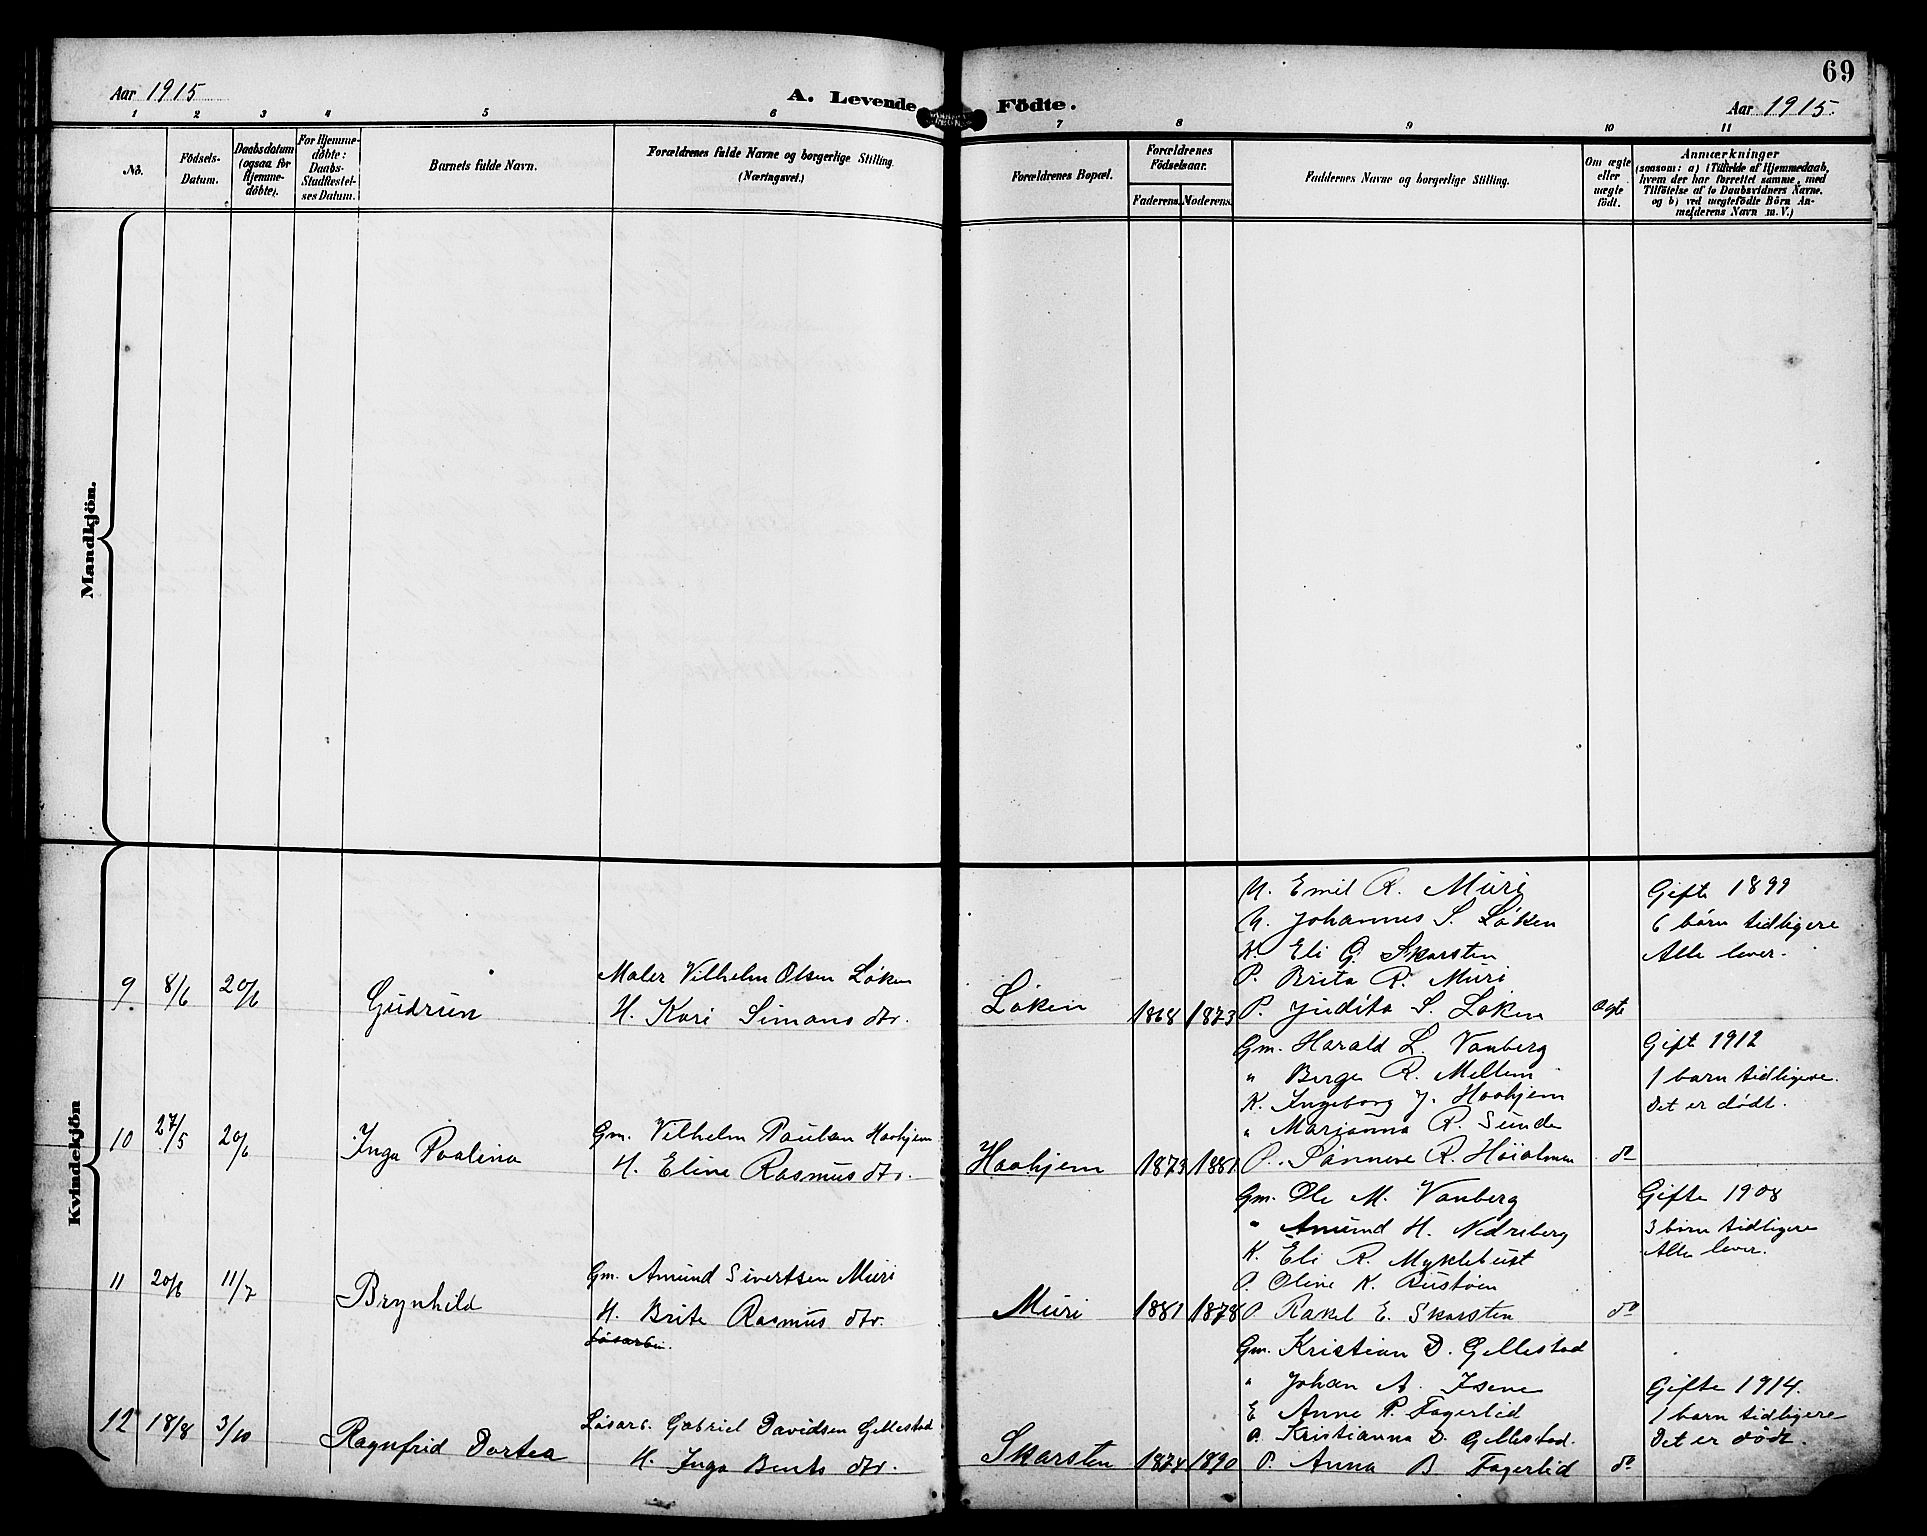 69
Aar 1915
A. Levende Födte.
Aar 1915.
1 2 3 4 5 6 7 8 9 10 11
No.
Födsels-
Datum.
Daabsdatum
(ogsaa for
Hjemme-
döbte).
For Hjemme-
döbte:
Daabs-
Stadfæstel-
ses Datum.
Barnets fulde Navn.
Forældrenes fulde Navne og borgerlige Stilling.
(Næringsvei.)
Forældrenes Bopæl.
Forældrenes
Födselsaar.
Faderens. Moderens.
Faddernes Navne og borgerlige Stilling.
Om ægte
eller
uægte
födt.
Anmærkninger
(saasom: a) i Tilfælde af Hjemmedaab,
hvem der har forrettet samme, med
Tilföielse af to Daabsvidners Navne.
og b) ved uægtefödte Börn An-
melderens Navn m. V.)
Mandkjön.
Kvindekjön
U. Emil R. Muri
U. Johannes S. Løken
K. Eli G. Skarsten
P. Brita R. Muri
Gifte 1899
6 børn tidligere
Alle lever.
Maler Vilhelm Olsen Løken
9 8/6 20/6 Gudrun H. Kari Simons dtr. Løken 1868 1873 P. Judita S. Løken ægte
Gm. Harald L. Vanberg
" Berge R. Mellem
K. Ingeborg J. Haahjem
" Marianna R. Sunde
Gift 1912
1 barn tidligere.
Det er dødt.
Gm. Vilhelm Paulsen Haahjem
10 27/5 20/6 Inga Paalina H. Eline Rasmus dtr. Haahjem 1873 1881 P. Sanneve R. Høialmen do
Gm. Ole M. Vanberg
" Amund H. Nedreberg
K. Eli R. Myklebust
P. Oline K. Bustøen
Gifte 1908
3 børn tidligere
Alle lever.
Gm. Amund Sivertsen Muri
11 20/6 11/7 Brynhild H. Brite Rasmus dtr. Muri 1881 1878 P Rakel E. Skarsten do
Løsarbei.
Gm. Kristian D. Gillestad
" Johan A. Isene
E Anne P. Fagerlid
P. Kristianna D. Gillestad.
Gifte 1914.
1 barn tidligere
Det er dødt.
Løsarb. Gabriel Davidsen Gillestad
12 18/8 3/10 Ragnfrid Dortea H. Inga Bents dtr. Skarsten 1874 1890 P. Anna B Fagerlid do